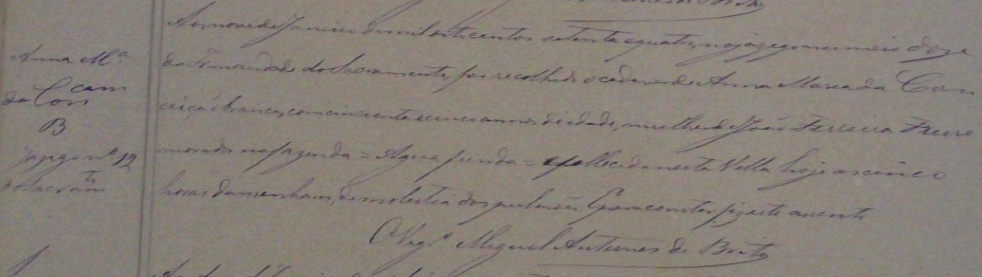 Anna M.ª
da Con
cam
B
jazigo nº 12
Aos nove de Janeiro de mil oitocentos setenta e quatro, no jazigo numero doze
da Irmandade do Sacramento foi recolhido o cadaver de Anna Maria da Con
ceição branca, com cincoenta e cinco annos de idade, mulher de João Ferreira Freire
morador na fazenda = Agua funda = e fallecida nesta Villa hoje as cinco
horas da manham, de molestia dos pulmões. E para constar fiz este assento
O Vigrº Miguel Antunes de Brito